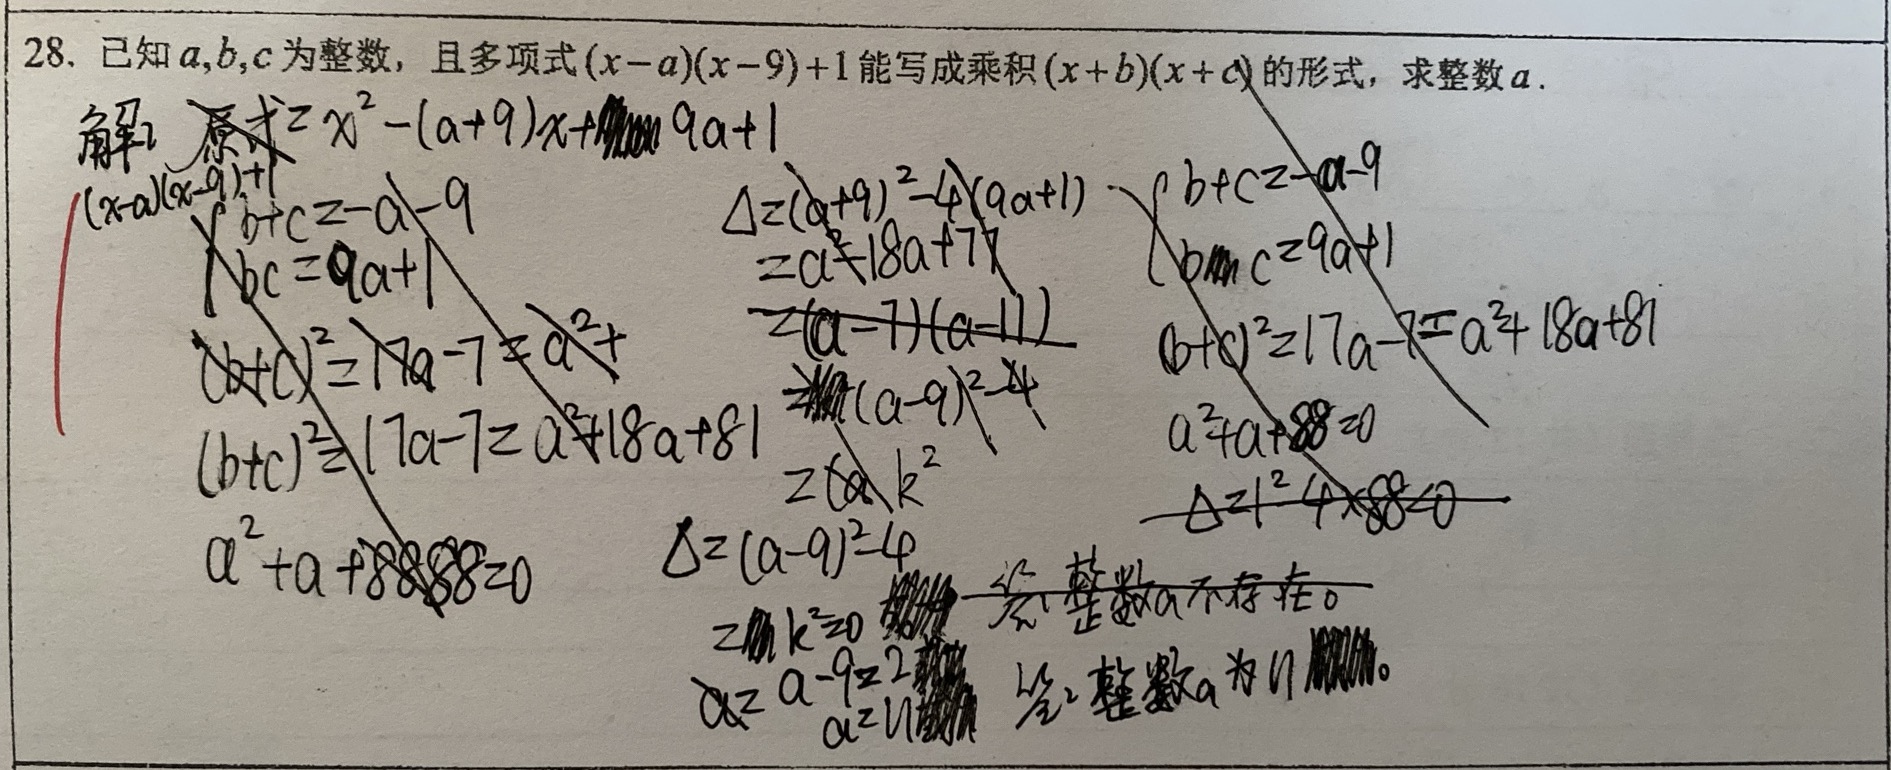 28. 已知 a,b,c 为整数，且多项式 (x-a)(x-9)+1 能写成乘积 (x+b)(x+c) 的形式，求整数 a.
解: 原式 = x² -(a+9)x+ 9a+1
(x-a)(x-9)+1
b+c=-a-9
bc=9a+1
(b+c)²=17a-7=a²+
(b+c)²=17a-7=a²+18a+81
a²+a+8888=0
Δ=(a+9)²-4(9a+1)
=a²-18a+77
=(a-7)(a-11)
=(a-9)²-4
=(a k²
Δ=(a-9)²-4
= k²=0
a= a-9=2
a=11
b+c=-a-9
b c=9a+1
(b+c)²=17a-7=a²+18a+81
a²+a+88=0
Δ=1²-4×88<0
答: 整数a不存在。
答: 整数a为11。